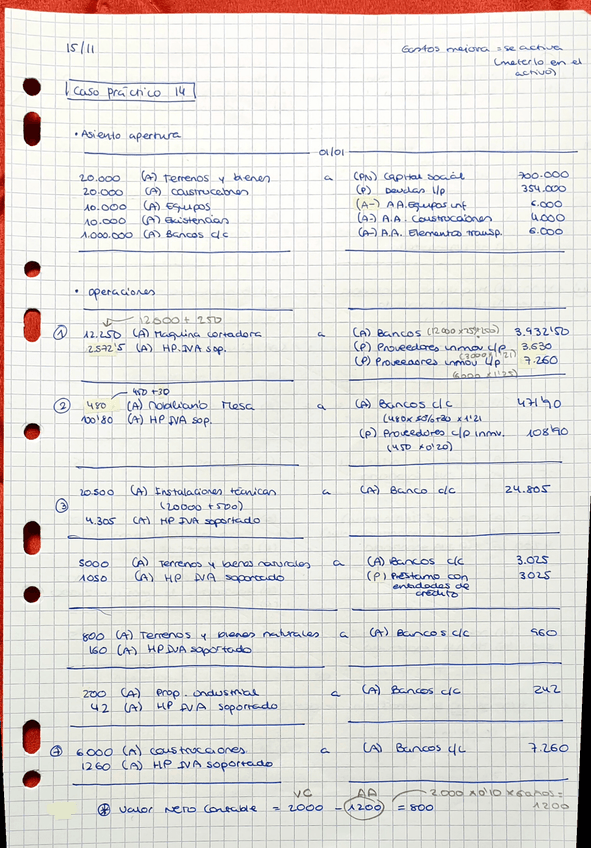 15/11
Gastos mejora = se activa
(meterlo en el activo)
Caso práctico 14
• Asiento apertura
01/01
20.000 (A) Terrenos y bienes a (PN) Capital social 700.000
20.000 (A) construcciones (P) Deudas l/p 354.000
10.000 (A) Equipos (A-) A.A. Equipos inf 6.000
10.000 (A) Existencias (A-) A.A. Construcciones 4.000
1.000.000 (A) Bancos c/c (A-) A.A. Elementos transp. 6.000
• operaciones
12000 + 250
① 12.250 (A) Maquina cortadora a (A) Bancos 3.932'50
2572'5 (A) HP. IVA sop. (P) Proveedores inmov c/p 3.630
(3000 x 1'21)
(P) Proveedores inmov l/p 7.260
450 + 30
② 480 (A) Mobiliario Mesa a (A) Bancos c/c 471'90
100'80 (A) HP IVA sop.
(P) Proveedores c/p inmv. 108'90
(450 x 0'20)
20.500 (A) Instalaciones técnicas a (A) Banco c/c 24.805
③ (20000 + 500)
4.305 (A) HP IVA soportado
5000 (A) Terrenos y bienes naturales a (A) Bancos c/c 3.025
1050 (A) HP IVA soportado (P) Préstamo con 3025
entidades de
crédito
800 (A) Terrenos y bienes naturales a (A) Bancos c/c 960
160 (A) HP IVA soportado
200 (A) Prop. industrial a (A) Bancos c/c 242
42 (A) HP IVA soportado
④ 6000 (A) construcciones a (A) Bancos c/c 7.260
1260 (A) HP IVA soportado
VC AA 2.000 x 0'10 x 6 años =
* Valor Neto Contable = 2000 - 1200 = 800 1200